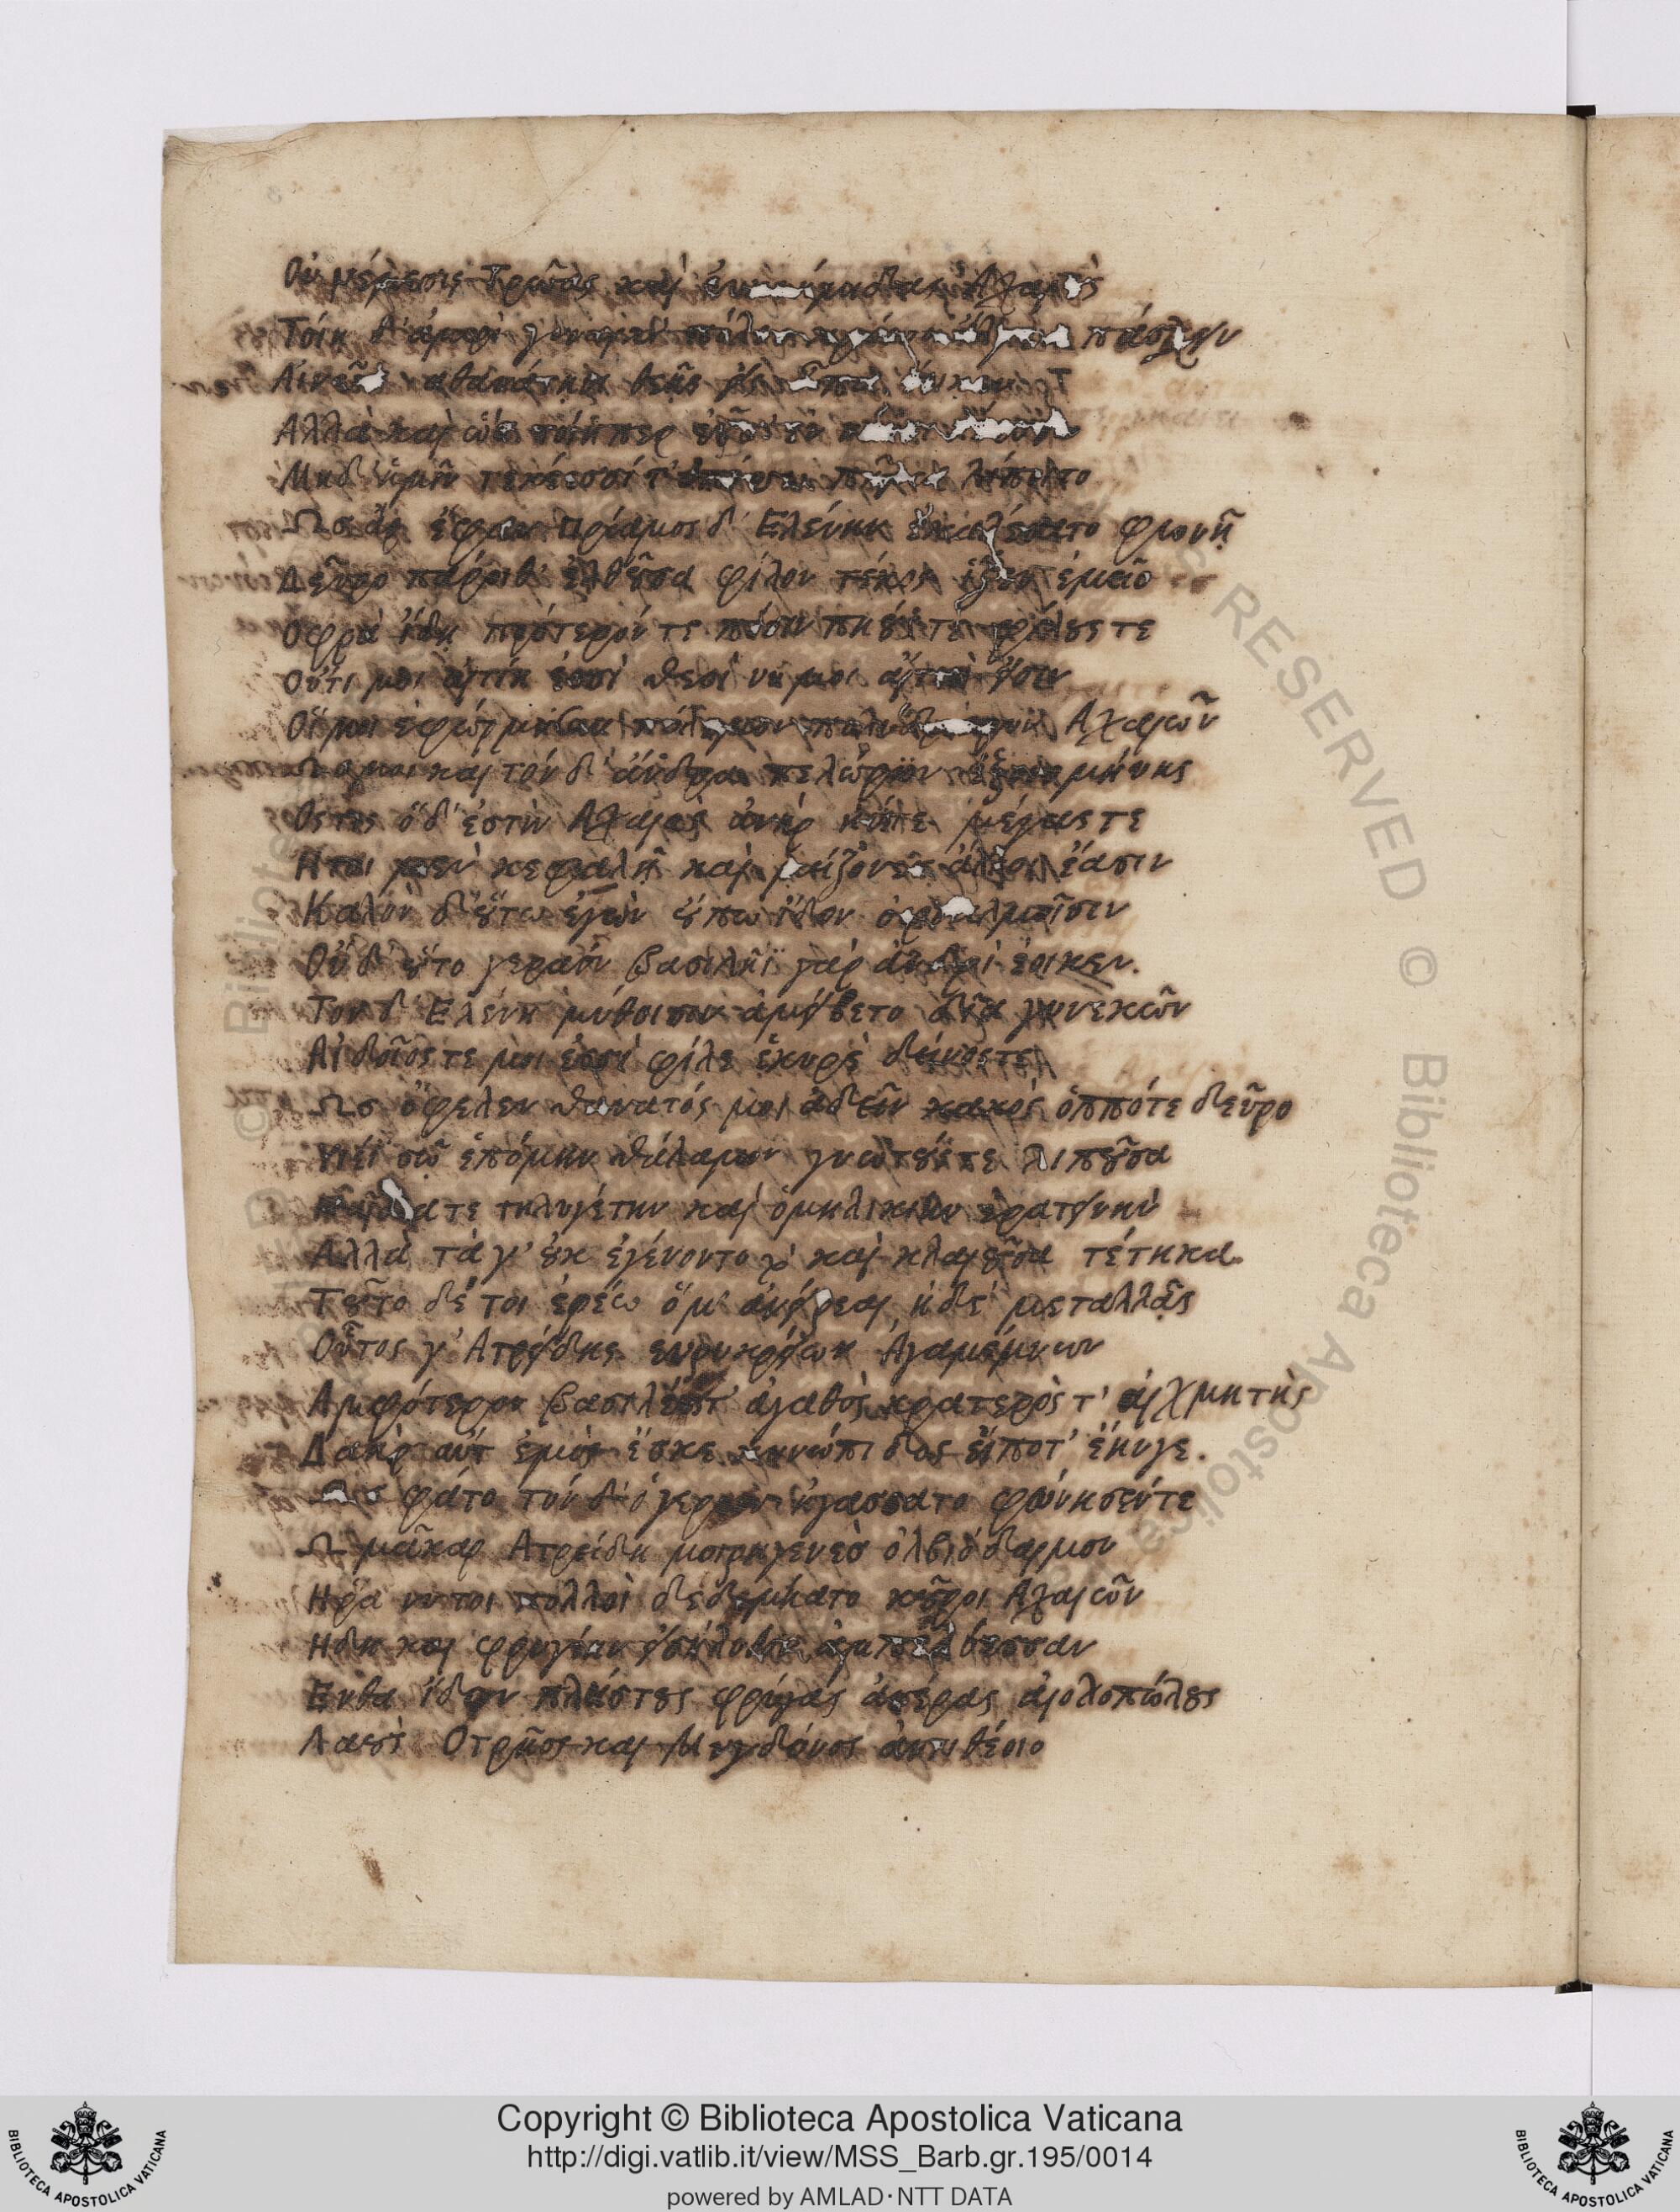 Οὐ νέμεσις Τρῶας καὶ Ἀχαιοὺς
Τοίῃ δ' ἀμφὶ γυναικὶ πολὺν χρόνον ἄλγεα πάσχειν
Αἰνῶς ἀθανάτῃσι θεῇς
Ἀλλὰ καὶ ὧς τοίη περ ἐοῦσ' ἐν
Μηδ' ἡμῖν τεκέεσσί τ' ὀπίσσω πῆμα λίποιτο
Ως ἄρ ἔφαν Πρίαμος δ' Ελένην ἐκαλέσατο φωνῇ
Δεῦρο πάροιθ' ἐλθοῦσα φίλον τέκος ἵζευ ἐμεῖο
Οφρα ἴδῃ πρότερόν τε πόσιν πηούς τε φίλους τε
Οὔτι μοι αἰτίη ἐσσὶ θεοί νύ μοι αἴτιοί εἰσιν
Οἵ μοι ἐφώρμησαν πόλεμον πολύδακρυν Αχαιῶν
Ως μοι καὶ τόνδ' ἄνδρα πελώριον ἐξονομήνῃς
Οστις ὅδ' ἐστὶν Αχαιὸς ἀνὴρ ἠύς τε μέγας τε
Ητοι μὲν κεφαλῇ καὶ μείζονες ἄλλοι ἔασιν
Καλὸν δ' οὕτω ἐγὼν οὔπω ἴδον ὀφθαλμοῖσιν
Οὐδ' οὕτο γεραόν βασιλῆϊ γὰρ ἀνδρὶ ἔοικεν.
Τον δ' Ελένη μύθοισιν ἀμείβετο δῖα γυνεκῶν
Αἰδοῖος τε μοι ἐσσὶ φίλε ἑκυρὲ δεινός τε
Ως ὄφελεν θανατός μοι ἁδεῖν κακὸς ὁππότε δεῦρο
Υιέϊ σῷ ἑπόμην θάλαμον γνωτούς τε λιποῦσα
Παῖδα τε τηλυγέτην καὶ ὁμηλικίην ερατεινὴν
Αλλὰ τά γ' οὐκ ἐγένοντο καὶ κλαίουσα τέτηκα
Τοῦτο δέ τοι ἐρέω ὅ μ' ἀνείρεαι, ἠδὲ μεταλλᾷς
Οὗτος γ' Ατρείδης ευρυκρείων Ἀγαμέμνων
Αμφότερον βασιλεύς τ' ἀγαθὸς κρατερὸς τ' αἰχμητὴς
Δαὴρ αὖτ ἐμὸς ἔσκε κυνώπιδος εἴ ποτ' ἔην γε.
Ως φάτο τόν δ' ὁ γέρων ἠγάσσατο φώνησέν τε
Ω μάκαρ Ατρείδη μοιρηγενὲσ ὀλβιόδαιμον
Η ῥά νυ τοι πολλοὶ δεδεμήατο κοῦροι Αχαιῶν
Ηδη και φρυγίην εἰσήλυθον ἀμπελόεσσαν
Ενθα ἴδον πλείστους φρύγας ἀνέρας αἰολοπώλους
Λαοὺς Οτρῆος καὶ Μυγδόνος ἀντιθέοιο
Copyright © Biblioteca Apostolica Vaticana
http://digi.vatlib.it/view/MSS_Barb.gr.195/0014
powered by AMLAD·NTT DATA